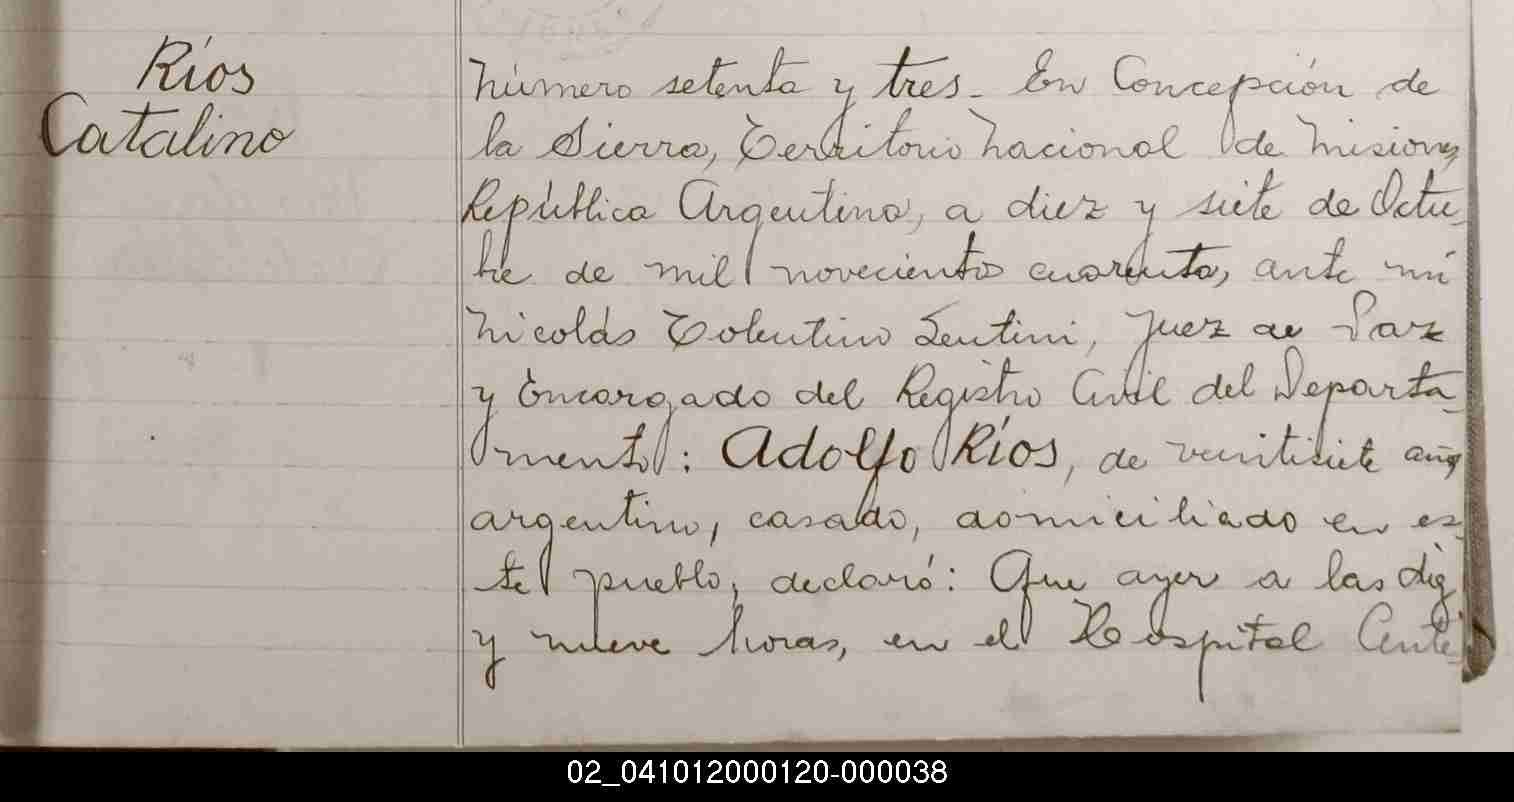 Ríos
Catalino
Número setenta y tres - En Concepción de
la Sierra, Territorio Nacional de Misiones
República Argentina, a diez y siete de Octu-
bre de mil novecientos cuarenta, ante mí
Nicolás Tolentino Sentini, Juez de Paz
y Encargado del Registro Civil del Departa-
mento: Adolfo Ríos, de veintisiete años
argentino, casado, domiciliado en es-
te pueblo, declaró: Que ayer a las diez
y nueve horas, en el Hospital Cente-
02_041012000120-000038